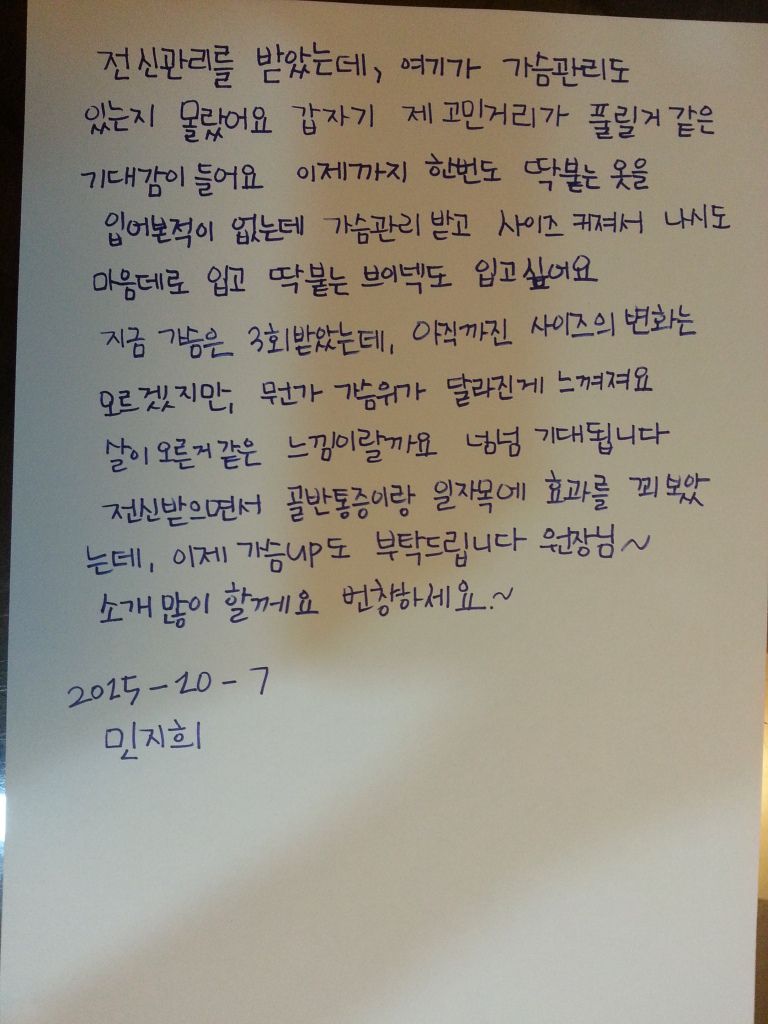 전신관리를 받았는데, 여기가 가슴관리도
있는지 몰랐어요 갑자기 제 고민거리가 풀릴거 같은
기대감이 들어요 이제까지 한번도 딱붙는 옷을
입어본적이 없는데 가슴관리 받고 사이즈 커져서 나시도
마음데로 입고 딱붙는 브이넥도 입고싶어요
지금 가슴은 3회받았는데, 아직까진 사이즈의 변화는
모르겠지만, 뭔가 가슴위가 달라진게 느껴져요
살이 오른거 같은 느낌이랄까요 넘넘 기대됩니다
전신받으면서 골반통증이랑 일자목에 효과를 꾀 보았
는데, 이제 가슴up도 부탁드립니다 원장님~
소개 많이 할께요 번창하세요.~
2015-10-7
민지희